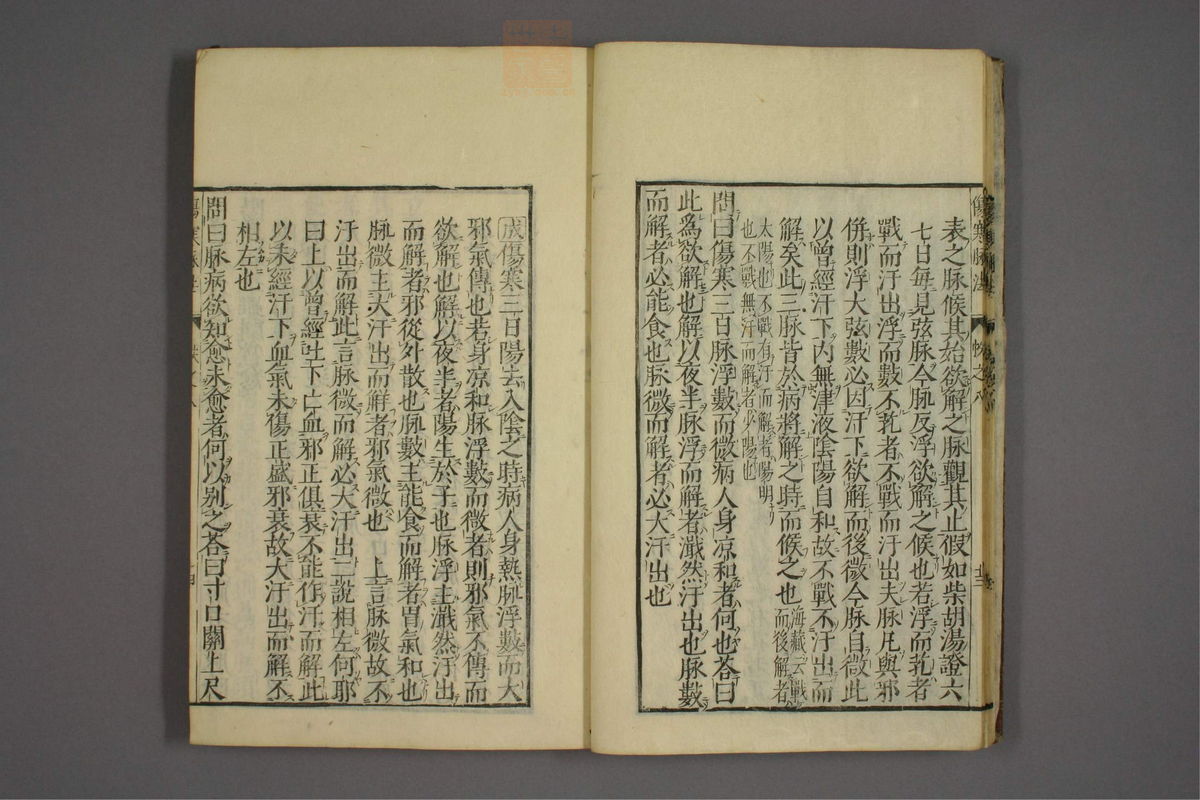 表之脉候其始欲解之脉觀其止假如柴胡湯證六
七日毎見弦脉今脉反浮欲解之候也若浮而芤者
戰而汗出浮而數不芤者不戰而汗出夫脉凡與邪
併則浮大弦數必因汗下欲解而後微今脉自微此
以曾經汗下内無津液陰陽自和故不戰不汗出而
解矣此三脉皆於病將解之時而候之也海藏云戰而後解者
太陽也不戰有汗而解者陽明
也不戰無汗而解者少陽也
問曰傷寒三日脉浮數而微病人身凉和者何也荅曰
此為欲解也解以夜半脉浮而解者濈然汗出也脉數
而解者必能食也脉微而解者必大汗出也
傷寒脉法
成傷寒三日陽去入陰之時病人身熱脉浮數而大
邪氣傳也若身凉和脉浮數而微者則邪氣不傳而
欲解也解以夜半者陽生於子也脉浮主濈然汗出
而解者邪從外散也脉數主能食而解者胃氣和也
脉微主大汗出而解者邪氣微也 上言脉微故不
汗出而解此言脉微而解必大汗出二說相左何耶
曰上以曾經吐下亡血邪正俱衰不能作汗而解此
以未經汗下血氣未傷正盛邪衰故大汗出而解不
相左也
問曰脉病欲知愈未愈者何以别之荅曰寸口關上尺